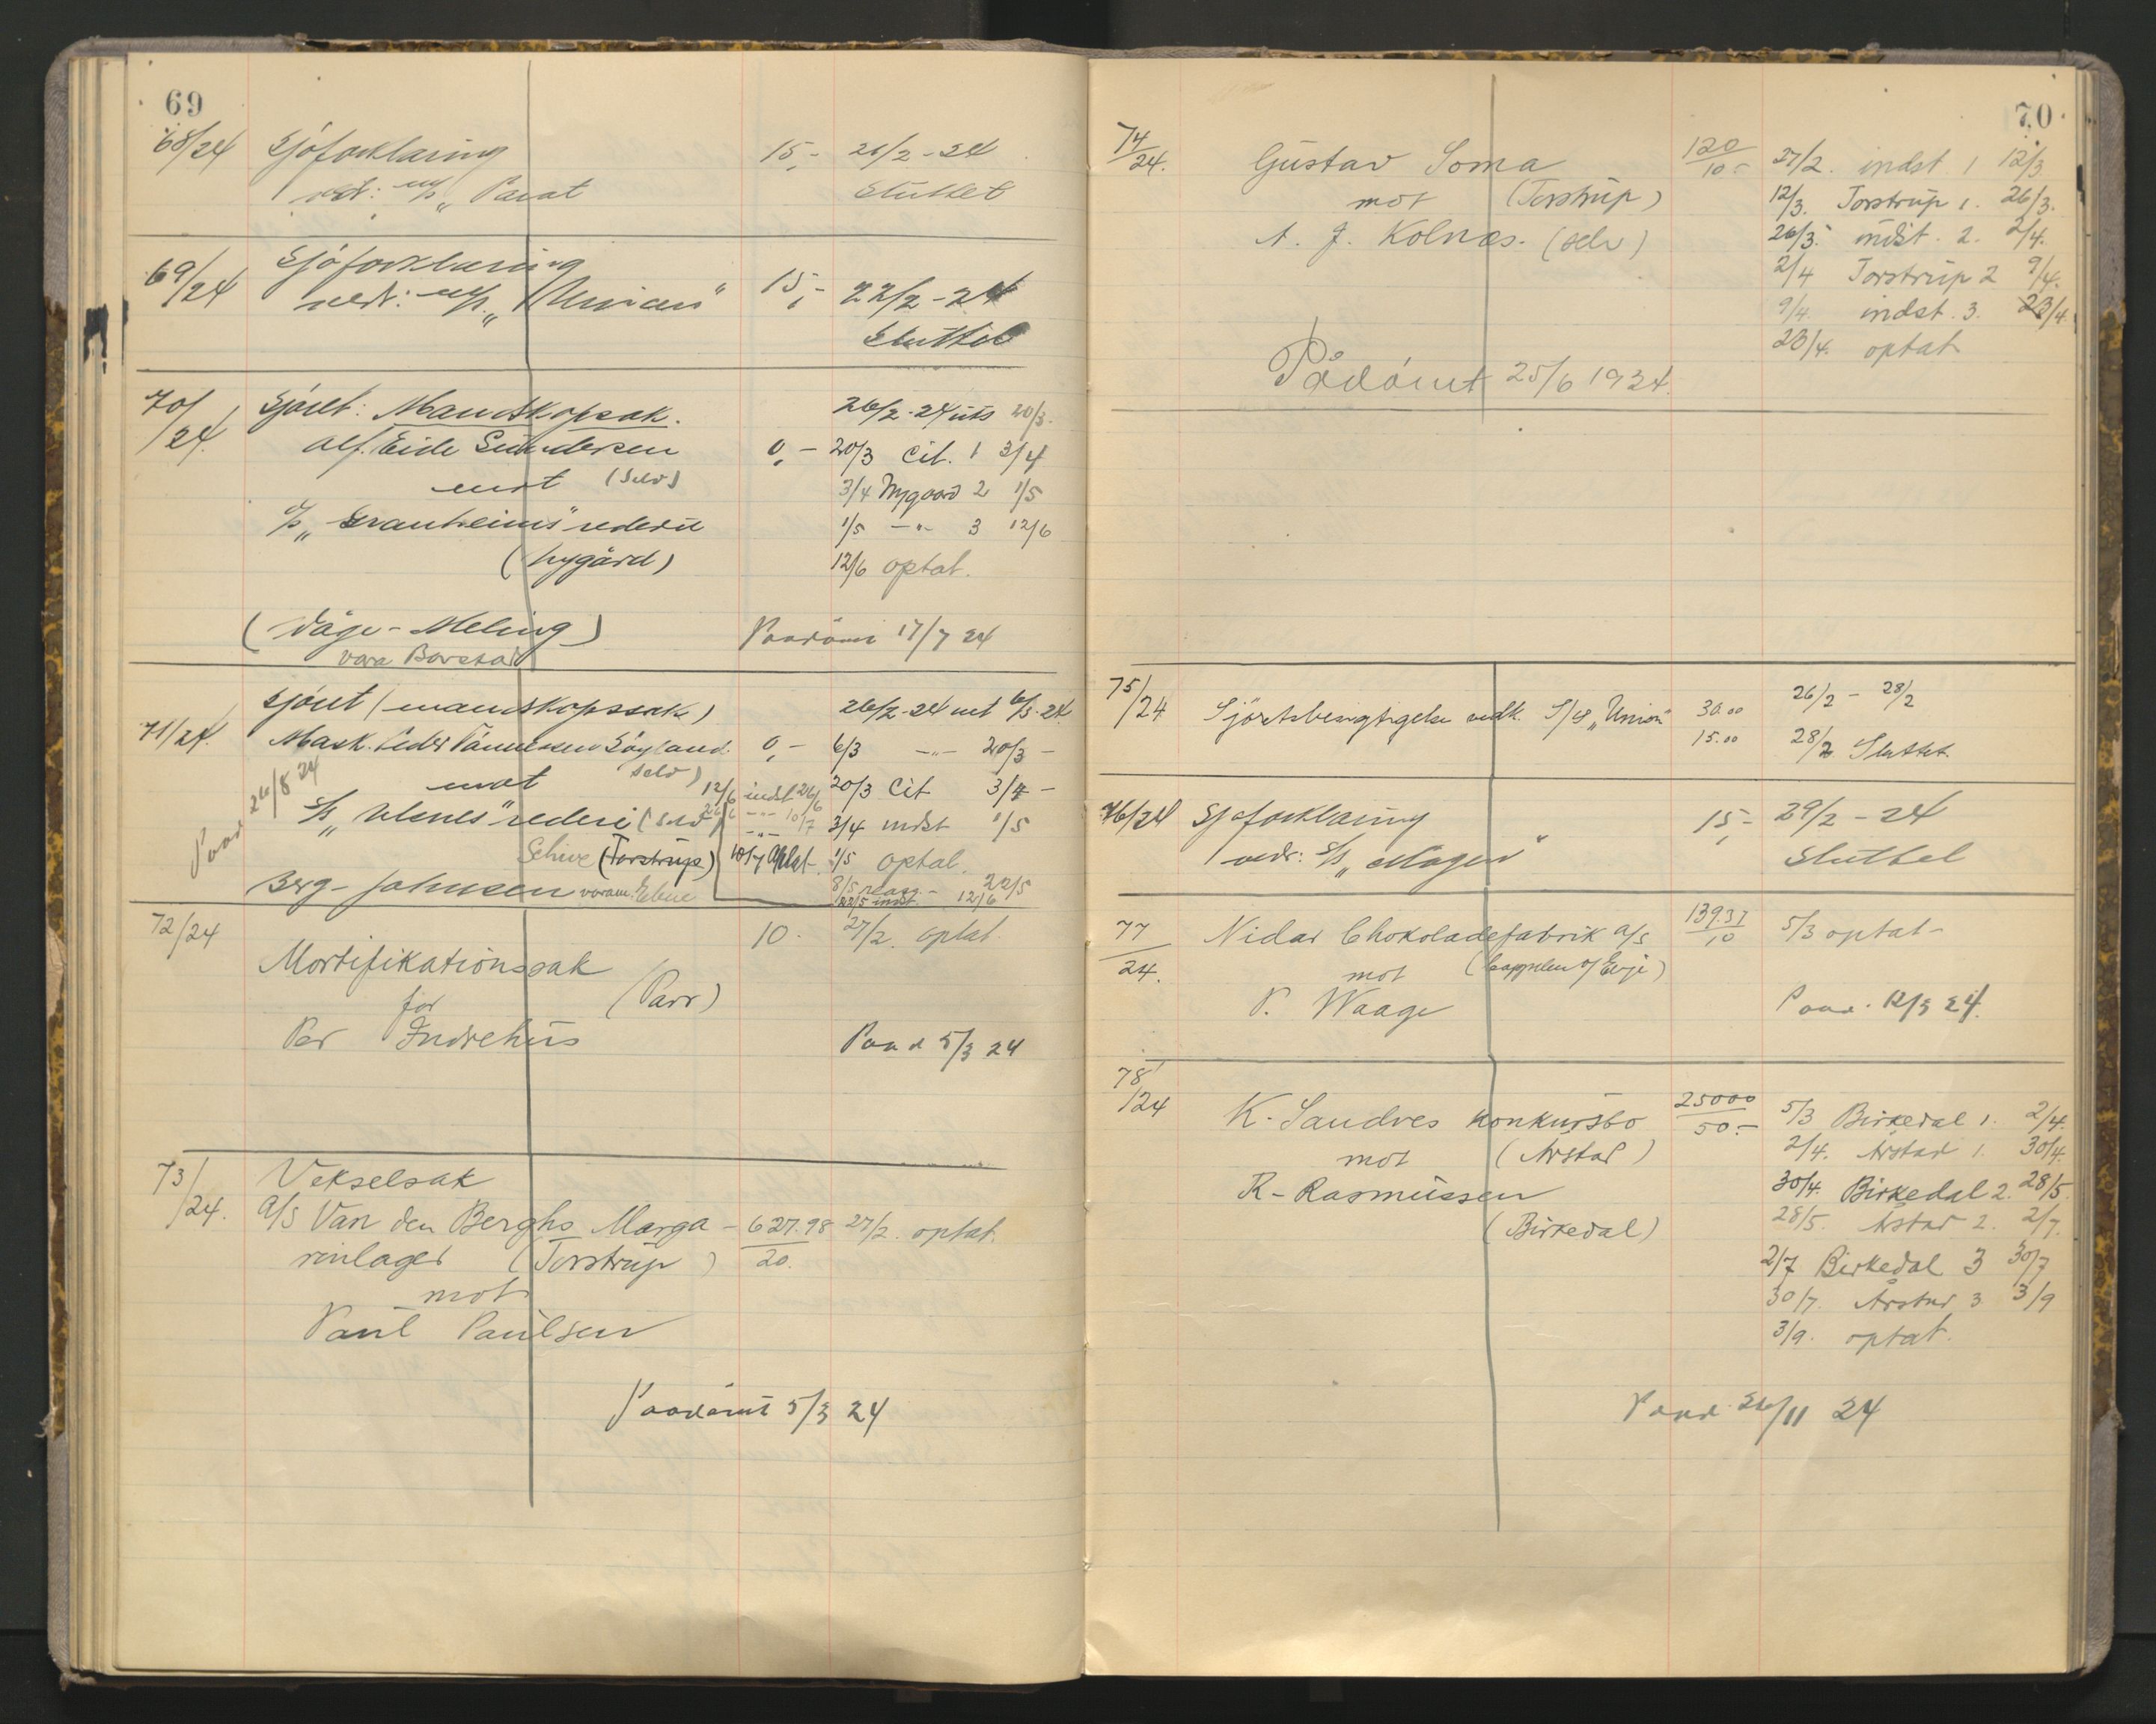 69
68/24 Sjöforklaring 15,- 21/2-24
vedr: m/s „Parat Sluttet
69/24 Sjöforklaring
vedr: m/s. „Unicus" 15,- 22/2-24
Sluttet
70/24. Sjöret: Mandskapssak. 26/2-24 uts 20/3.
Alf. Eide Gundersen 0,- 20/3 Cit. 1 3/4
mot (Selv) 3/4 Nygaard 2 1/5
s/s „Granheims" rederi 1/5 -"- 3 12/6
(Nygård) 12/6 optat.
(Våge - Meling) Paadömt 17/7 24
vara Barstad
71/24. Sjöret (mandskapssak) 26/2-24 uts 6/3-24.
Mask. Peder Tönnesen Söyland. 0,- 6/3 -"- 20/3-
mot selv) 12/6 indst 26/6 20/3 Cit 3/4-
s/s „Ulsnes" rederi (Selv) 26/6 -"- 10/7 3/4 indst 1/5
Schive (Torstrup) 10/7 Optat. 1/5 optat.
Paad 26/8 24
Berg-Johnsen varam. 8/5 reass.- 22/5
22/5 indst. 12/6
72/24 10. 27/2. optat.
Mortifikationssak
for (Parr)
Per Indrehus Paad 5/3 24
73/24. Vekselsak
A/S Van den Berghs Marga- 627.98 27/2. optat.
rinlager (Torstrup) 20.
mot
Paul Paulsen
Paadömt 5/3 24
70
74/24. Gustav Soma 120/10- 27/2. indst. 1 12/3
mot (Torstrup) 12/3. Torstrup 1. 26/3.
A. J. Kolnes. (selv) 26/3. indst. 2. 2/4.
2/4 Torstrup 2 9/4.
9/4. indst. 3. 23/4.
23/4. optat
Pådömt 25/6 1924.
75/24 Sjöretsbesigtigelse vedk. S/S „Union" 30.00 26/2 - 28/2
15.00 28/2 Sluttet.
76/24 Sjøforklaring 15,- 29/2-24
vedr: s/s „Mogen" Sluttet
77/24. Nidar Chokoladefabrik A/S 139.37/10 5/3 optat-
mot (Cappelen & Evje)
P. Waage Paad. 12/3 24.
78/24 K. Sandves konkursbo 25000/50.- 5/3 Birkedal 1. 2/4.
mot (Årstad) 2/4. Årstad 1. 30/4.
R. Rasmussen 30/4. Birkedal 2. 28/5.
(Birkedal) 28/5. Årstad 2. 2/7.
2/7 Birkedal 3 30/7
30/7. Årstad 3 3/9
3/9. optat.
Paad. 26/11 24